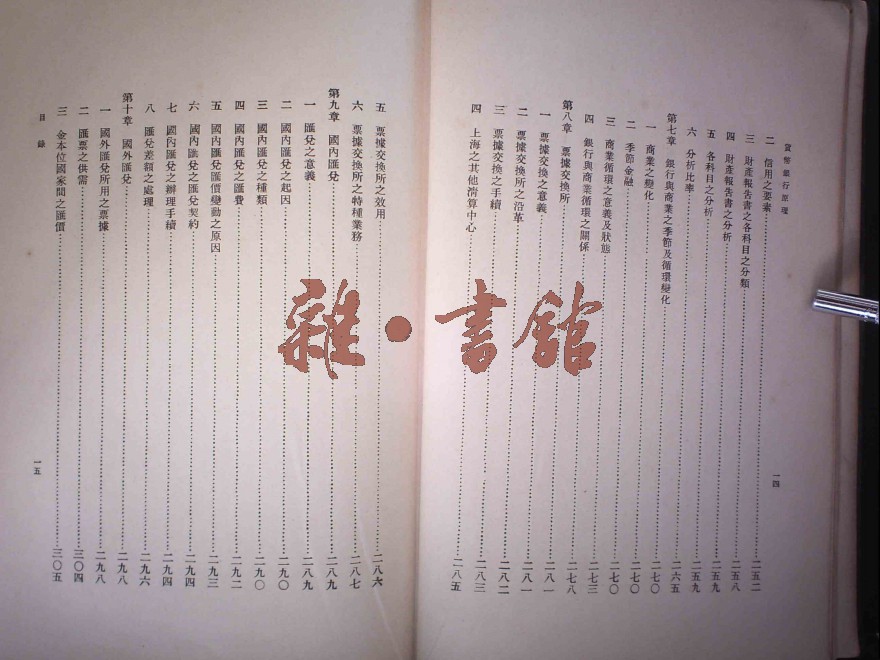 貨幣銀行原理
一四
二 信用之要素……二五二
三 財產報告書之各科目之分類……二五八
四 財產報告書之分析……二五九
五 各科目之分析……二五九
六 分析比率……二六五
第七章 銀行與商業之季節及循環變化……二七〇
一 商業之變化……二七〇
二 季節金融……二七〇
三 商業循環之意義及狀態……二七〇
四 銀行與商業循環之關係……二七三
第八章 票據交換所……二七八
一 票據交換之意義……二八一
二 票據交換所之沿革……二八一
三 票據交換之手續……二八二
四 上海之其他清算中心……二八五
五 票據交換所之效用……二八六
六 票據交換所之特種業務……二八七
第九章 國內匯兌……二八九
一 匯兌之意義……二八九
二 國內匯兌之起因……二九〇
三 國內匯兌之種類……二九〇
四 國內匯兌之匯費……二九二
五 國內匯兌匯價變動之原因……二九三
六 國內匯兌之匯兌契約……二九四
七 國內匯兌之辦理手續……二九四
八 匯兌差額之處理……二九六
第十章 國外匯兌……二九八
一 國外匯兌所用之票據……二九八
二 匯票之供需……三〇四
三 金本位國家間之匯價……三〇五
目錄
一五
雜·書館